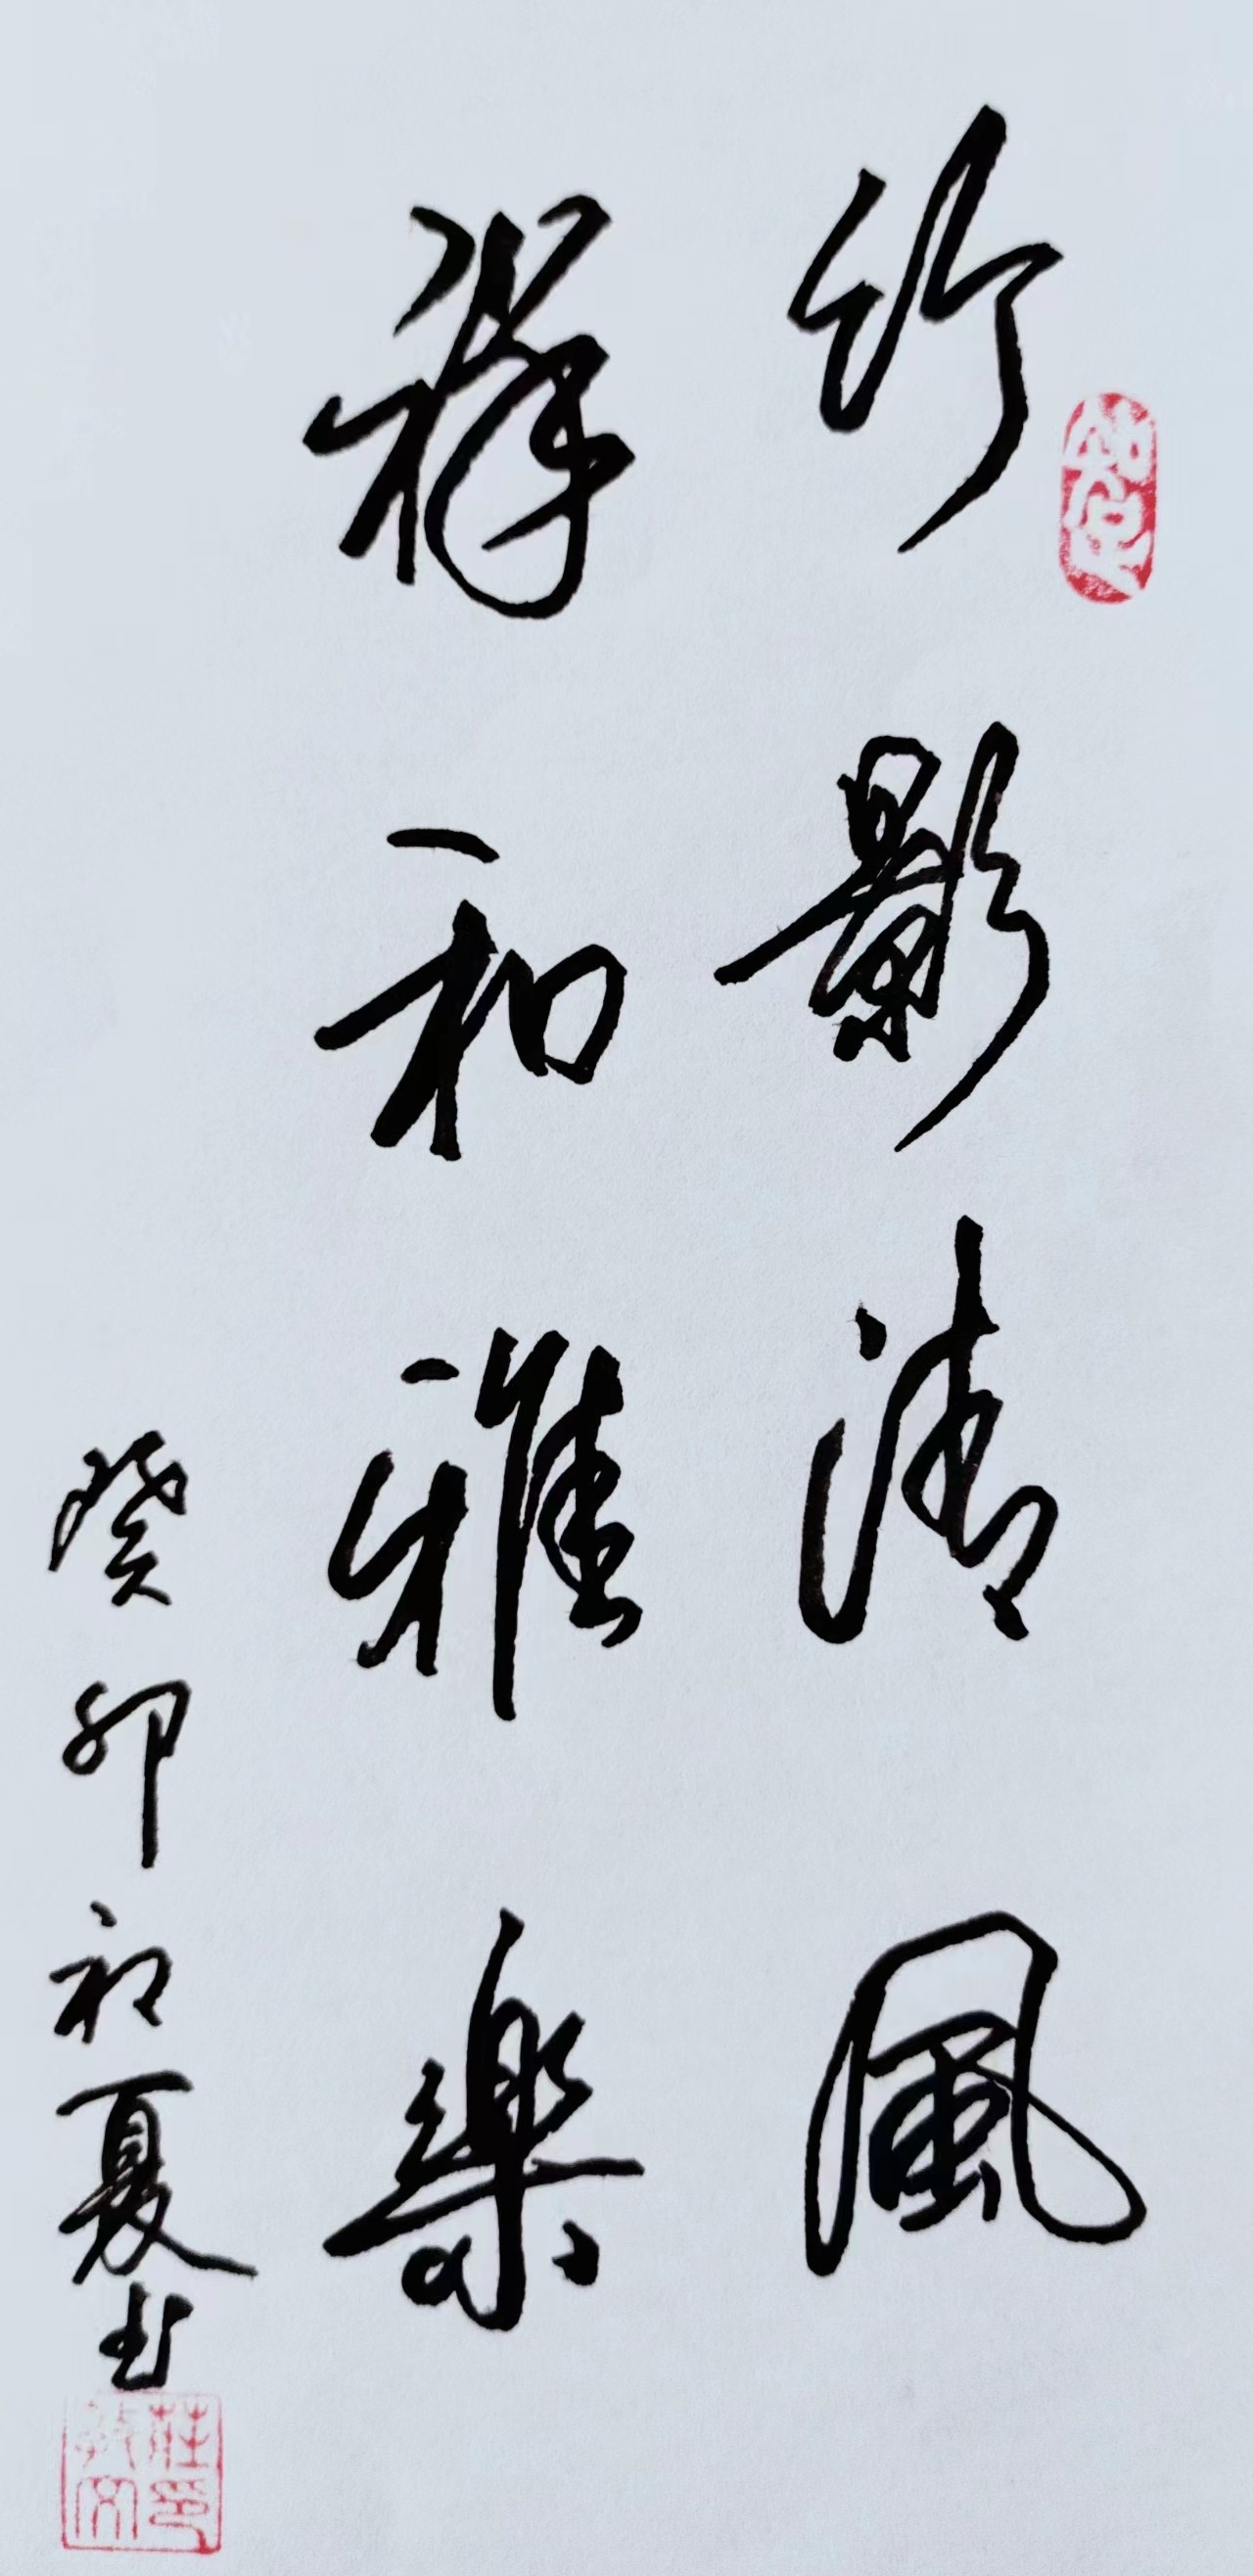 竹影清風
祥和雅樂
癸卯初夏书
知足